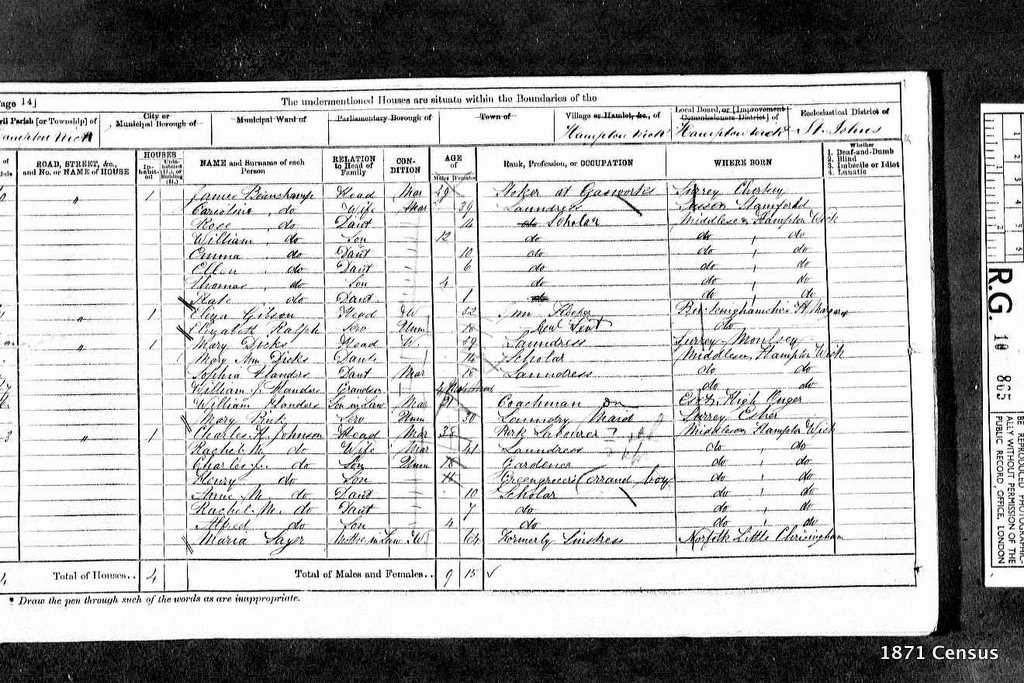 Page 14]
The undermentioned Houses are situate within the Boundaries of the
Civil Parish [or Township] of
City or Municipal Borough of
Municipal Ward of
Parliamentary Borough of
Town of
Village or Hamlet, &c., of
Local Board, or [Improvement Commissioners District] of
Ecclesiastical District of
Hampton Wick
Hampton Wick
Hampton Wick
St. Johns
ROAD, STREET, &c., and No. or NAME of HOUSE
HOUSES
In-habit-ed
Unin-habited (U.), or Building (B.)
NAME and Surname of each Person
RELATION to Head of Family
CON-DITION
AGE of
Males
Females
Rank, Profession, or OCCUPATION
WHERE BORN
Whether
1. Deaf-and-Dumb
2. Blind
3. Imbecile or Idiot
4. Lunatic
" 1 James Beauchamp Head Mar 49 Stoker at Gasworks Surrey Chertsey
Caroline do Wife Mar 39 Laundress Sussex
Rose do Daut 14 do Scholar Middlesex Hampton Wick
William do Son 12 do do do
Emma do Daut 10 do do do
Ellen do Daut 6 do do do
Thomas do Son 4 do do do
Kate do Daut 1 do do do
" 1 Eliza Gibson Head W 52
Elizabeth Ralph Serv Unm Gen Servt do
" 1 Mary Dicks Head W. 59 Laundress Surrey Moulsey
Mary Ann Dicks Daut 14 Scholar Middlesex Hampton Wick
Sophia Flanders Daut Mar Laundress do do
William J. Flanders Grandson do do
William Flanders Son in Law Mar 21 Coachman Essex High Ongar
Mary Serv Unm 30 Laundry Maid Surrey Esher
" 1 Charles H. Johnson Head Mar 38 Middlesex Hampton Wick
Rachel M. do Wife Mar 41 Laundress do do
Charles J. do Son Unm Gardener do do
Henry do Son Greengrocers errand boy do do
Annie M. do Daut 10 Scholar do do
Rachel M. do Daut 7 do do do
Alfred do Son 4 do do do
Maria Sayer Mother in Law W 64 Formerly Norfolk Little
4 Total of Houses.. 4 Total of Males and Females.. 9 15 ✓
* Draw the pen through such of the words as are inappropriate.
R.G. 10
865
BE REPRODUCED PHOTOGRAPHIC-
ALLY WITHOUT PERMISSION OF THE
PUBLIC RECORD OFFICE, LONDON
1871 Census